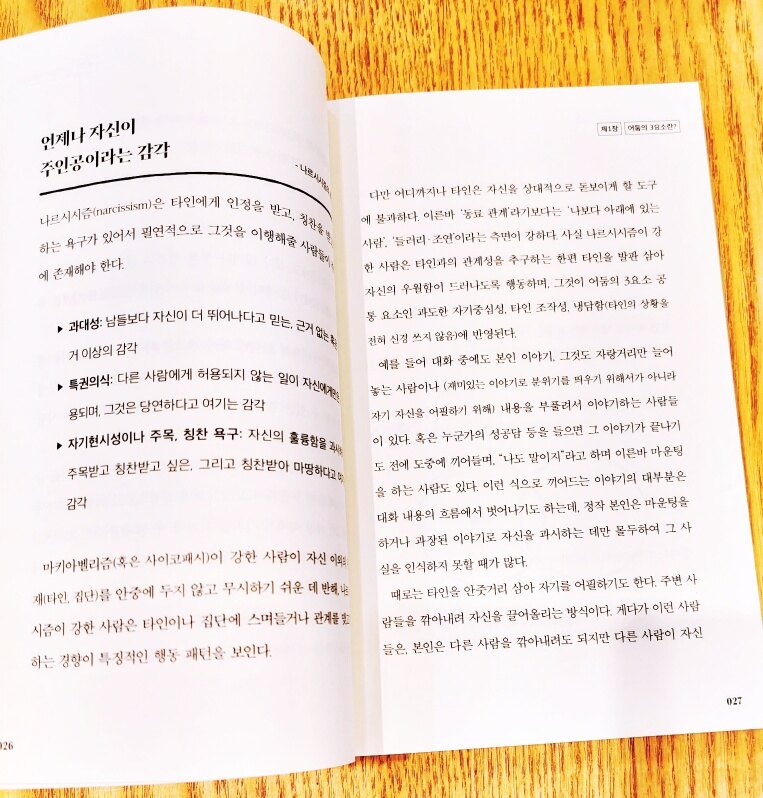 언제나 자신이
주인공이라는 감각
- 나르시시즘
나르시시즘(narcissism)은 타인에게 인정을 받고, 칭찬을
하는 욕구가 있어서 필연적으로 그것을 이행해줄 사람들이
에 존재해야 한다.
▶ 과대성: 남들보다 자신이 더 뛰어나다고 믿는, 근거 없는
거 이상의 감각
▶ 특권의식: 다른 사람에게 허용되지 않는 일이 자신에게만
용되며, 그것은 당연하다고 여기는 감각
▶ 자기현시성이나 주목, 칭찬 욕구: 자신의 훌륭함을 과시
주목받고 칭찬받고 싶은, 그리고 칭찬받아 마땅하다고
감각
마키아벨리즘(혹은 사이코패시)이 강한 사람이 자신 이외의
재(타인, 집단)를 안중에 두지 않고 무시하기 쉬운 데 반해,
시즘이 강한 사람은 타인이나 집단에 스며들거나 관계를
하는 경향이 특징적인 행동 패턴을 보인다.
026
제1장 어둠의 3요소란?
다만 어디까지나 타인은 자신을 상대적으로 돋보이게 할 도구
에 불과하다. 이른바 ‘동료 관계’라기보다는 ‘나보다 아래에 있는
사람’, ‘들러리·조연’이라는 측면이 강하다. 사실 나르시시즘이 강
한 사람은 타인과의 관계성을 추구하는 한편 타인을 발판 삼아
자신의 우월함이 드러나도록 행동하며, 그것이 어둠의 3요소 공
통 요소인 과도한 자기중심성, 타인 조작성, 냉담함(타인의 상황을
전혀 신경 쓰지 않음)에 반영된다.
예를 들어 대화 중에도 본인 이야기, 그것도 자랑거리만 늘어
놓는 사람이나 (재미있는 이야기로 분위기를 띄우기 위해서가 아니라
자기 자신을 어필하기 위해) 내용을 부풀려서 이야기하는 사람들
이 있다. 혹은 누군가의 성공담 등을 들으면 그 이야기가 끝나기
도 전에 도중에 끼어들며, “나도 말이지”라고 하며 이른바 마운팅
을 하는 사람도 있다. 이런 식으로 끼어드는 이야기의 대부분은
대화 내용의 흐름에서 벗어나기도 하는데, 정작 본인은 마운팅을
하거나 과장된 이야기로 자신을 과시하는 데만 몰두하여 그 사
실을 인식하지 못할 때가 많다.
때로는 타인을 안줏거리 삼아 자기를 어필하기도 한다. 주변 사
람들을 깎아내려 자신을 끌어올리는 방식이다. 게다가 이런 사람
들은, 본인은 다른 사람을 깎아내려도 되지만 다른 사람이 자신
027